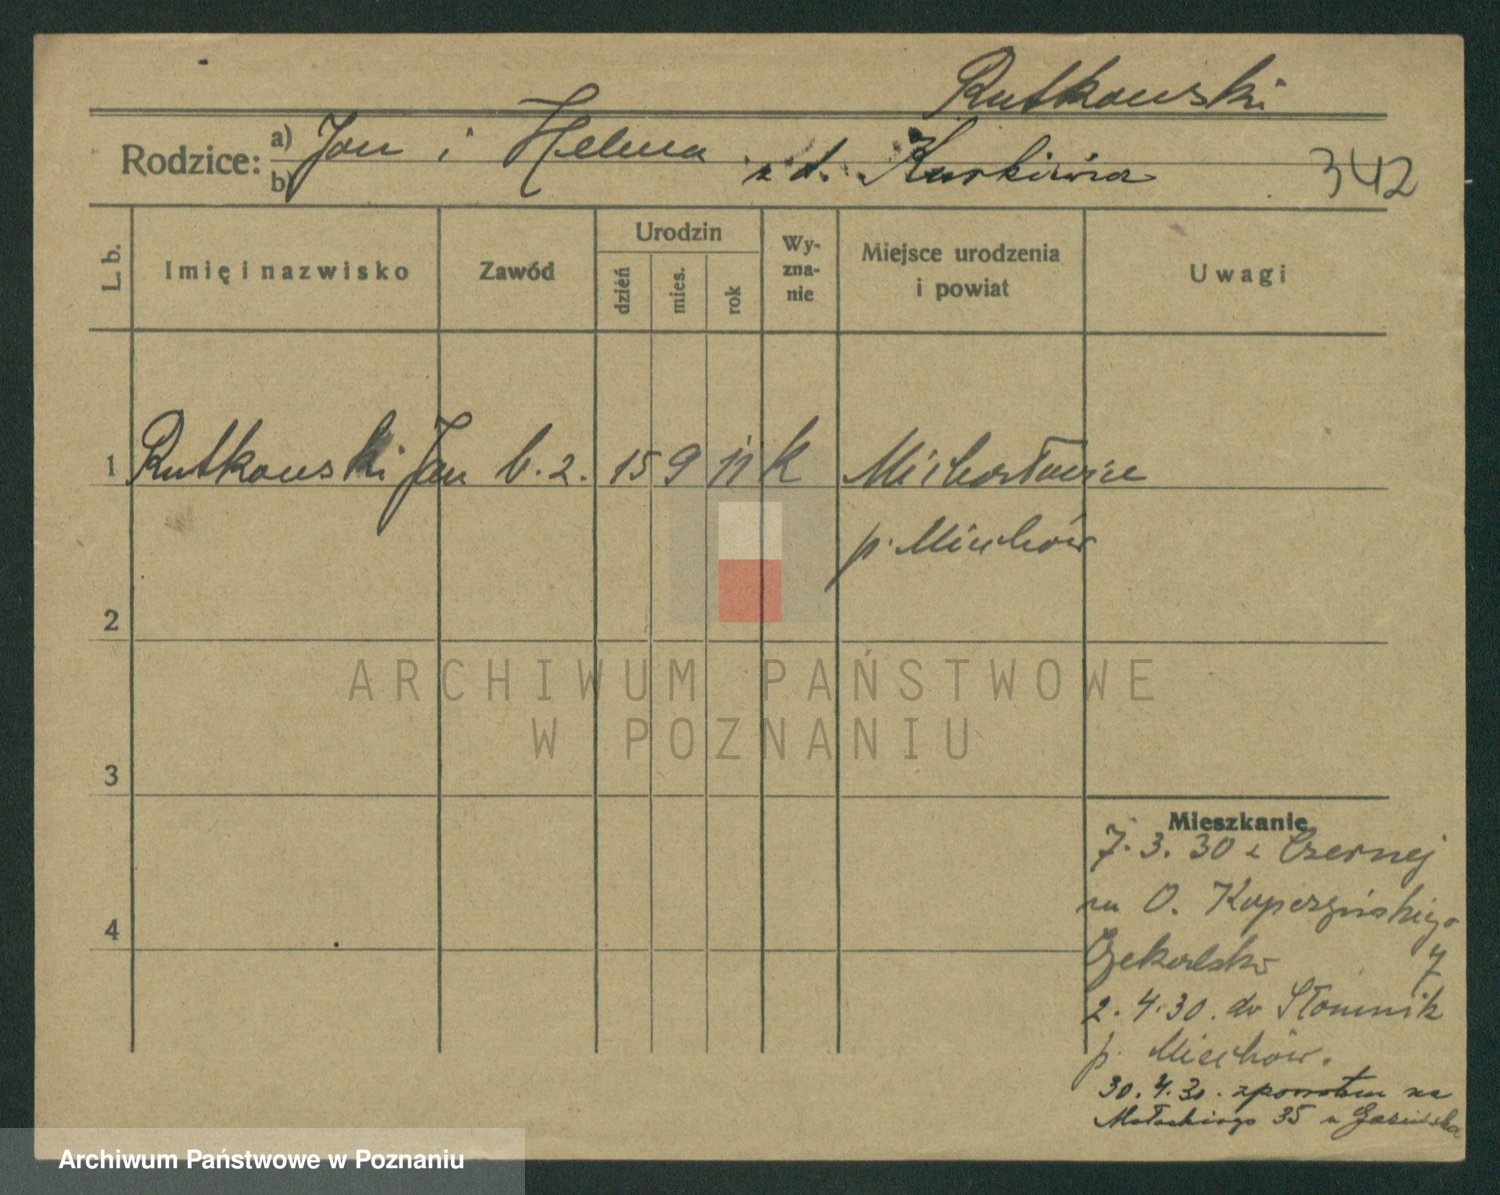 Rutkowski
Rodzice: a) Jan i Helena
b) z d. Kurkiewicz 342
L. b. Imię i nazwisko Zawód Urodzin dzień mies. rok Wy-zna-nie Miejsce urodzenia i powiat Uwagi
1 Rutkowski Jan b. 2. 15 9 11 K
p. Miechów
2
3
4
Mieszkanie
7. 3. 30 z Czernej
na O.
7
2. 4. 30. do Słomnik
p. Miechów.
30. 4. 30. zpowrotem na
35 u
ARCHIWUM PAŃSTWOWE
W POZNANIU
Archiwum Państwowe w Poznaniu